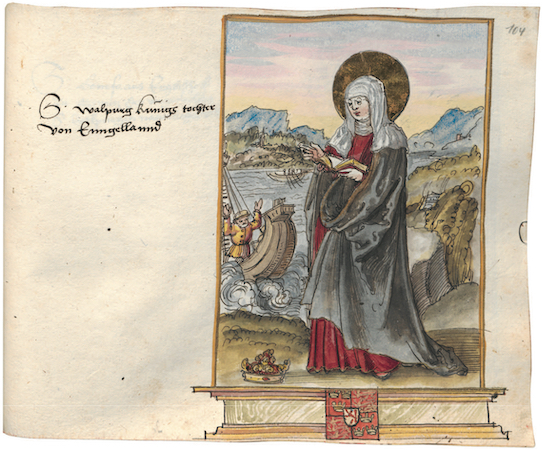 S. walpurg künigs tochter
von Enngellannd
104